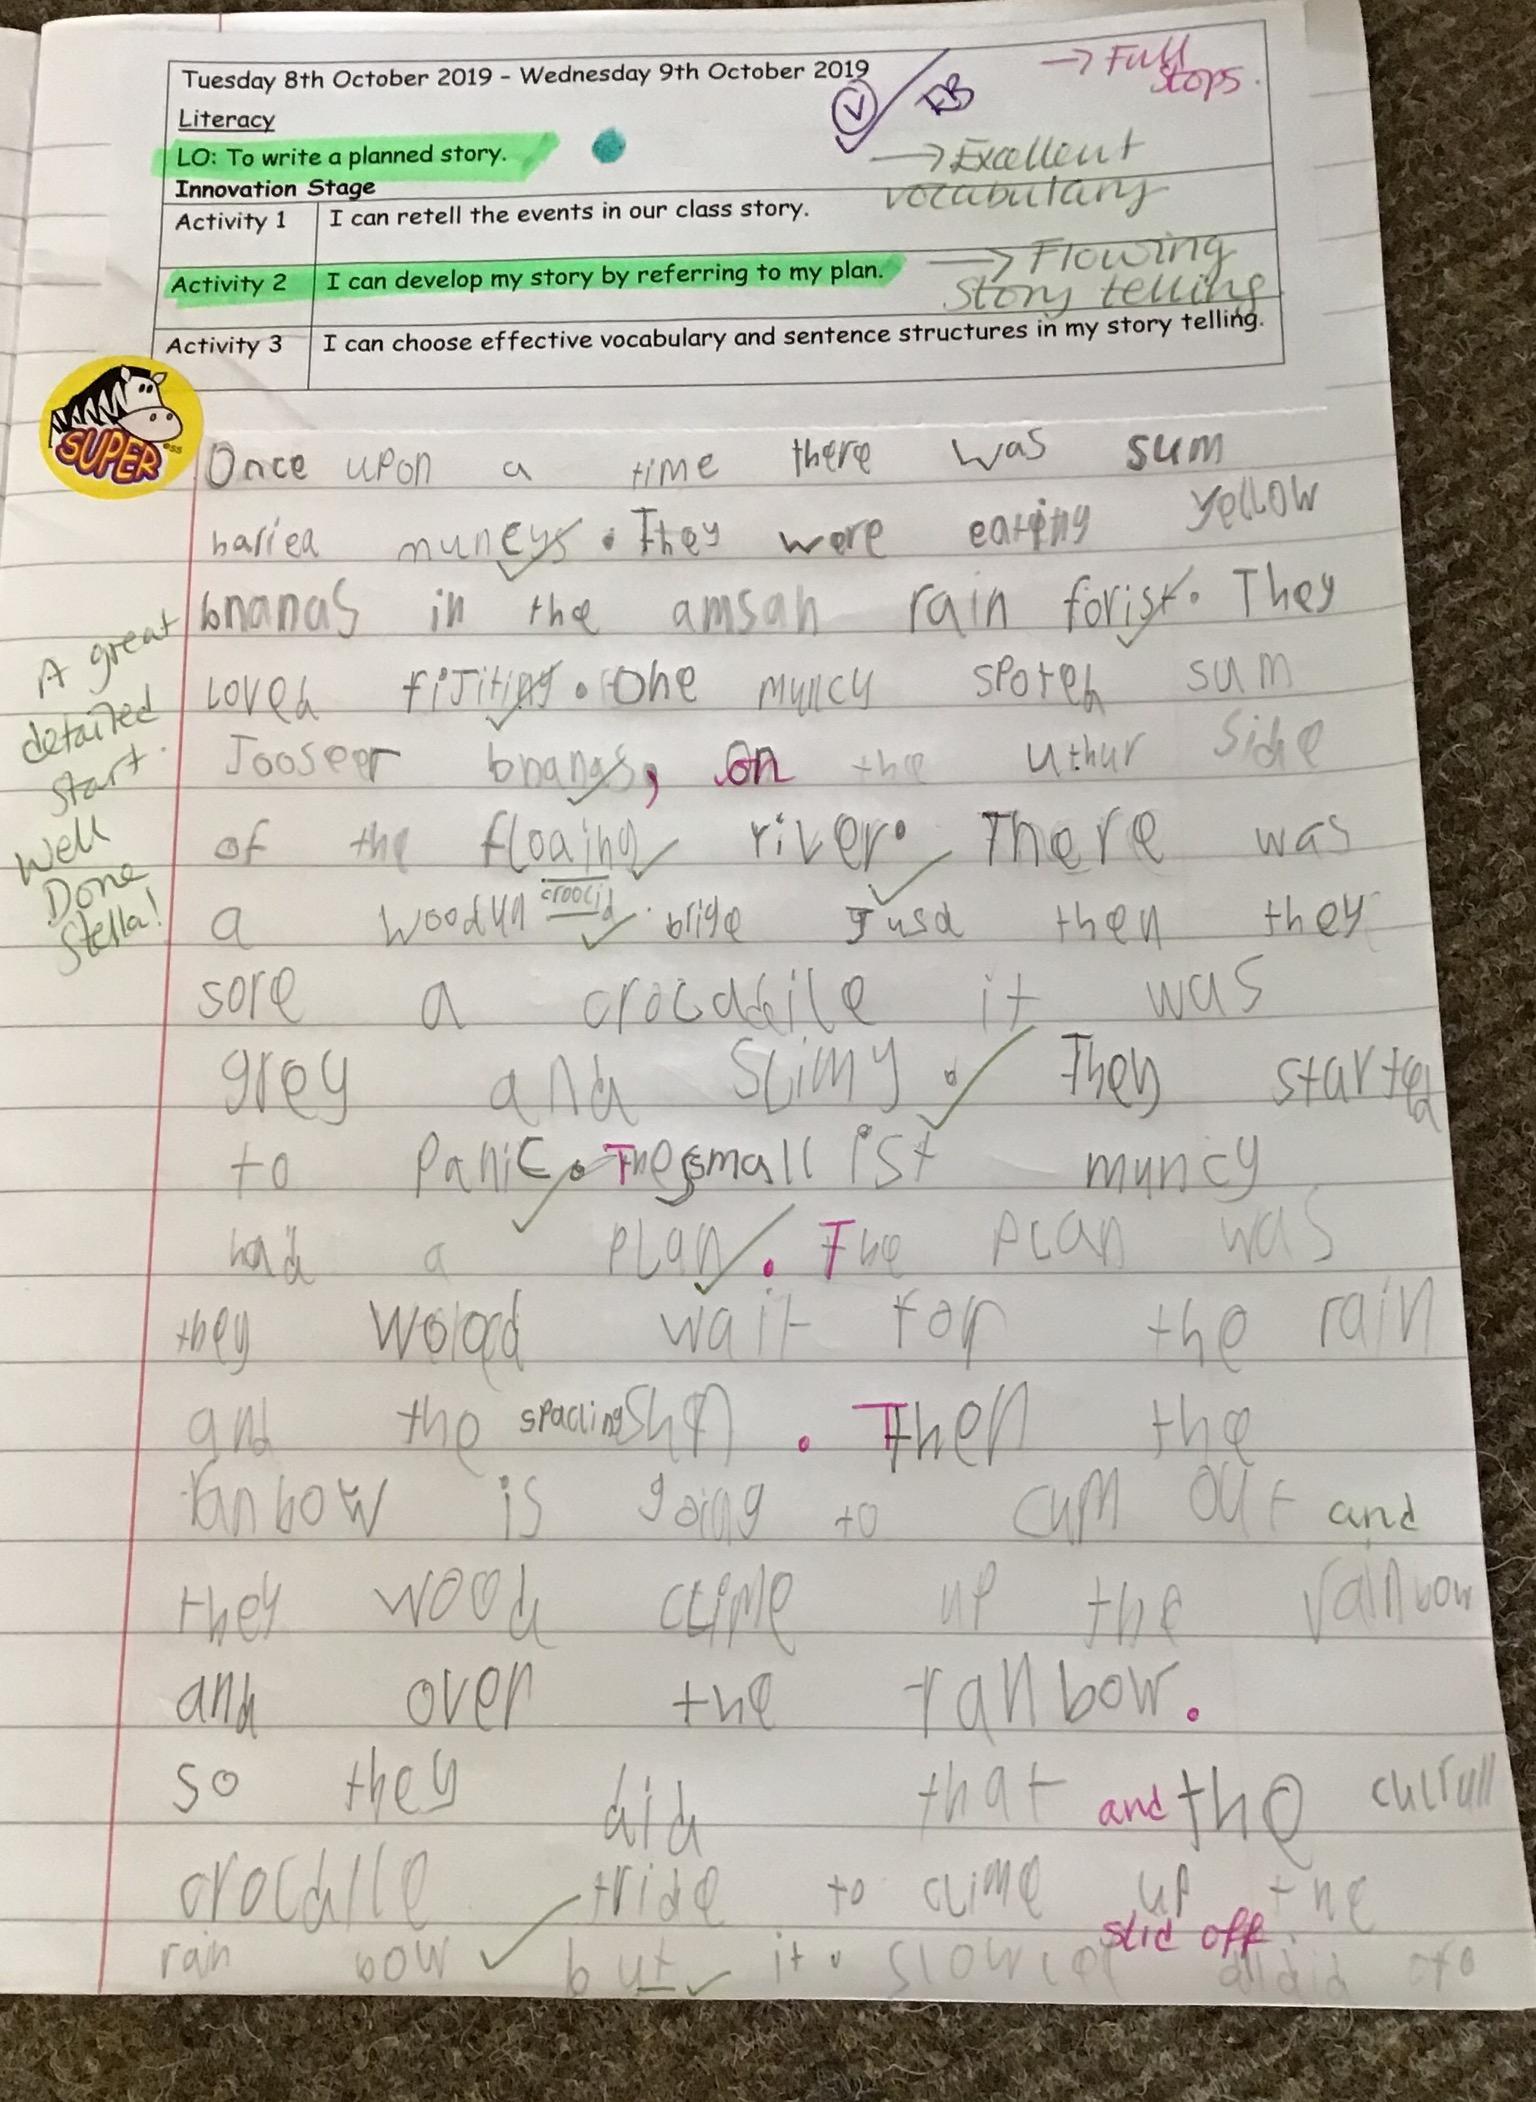 Tuesday 8th October 2019 - Wednesday 9th October 2019
→ Full
Stops.
Literacy
LO: To write a planned story.
→ Excellent
vocabulary
Innovation Stage
Activity 1 I can retell the events in our class story.
Activity 2 I can develop my story by referring to my plan.
→ Flowing
Story telling
Activity 3 I can choose effective vocabulary and sentence structures in my story telling.
SUPER
A great
detailed
start.
Well
Done
Stella!
Once upon a time there was sum
muneys. They were eating yellow
bnanas in the amsah rain forist. They
loved fijiting. One muncy spoted sum
Jooseer bnanas, on the uthur side
of the floaing river. There was
a woodun croocid brige Jusd then they
sore a crocadile it was
grey and slimy. They started
to panic. The small ist muncy
had a plan. The plan was
they wolod wait for the rain
and the spacling shn. Then the
ranbow is going to cum out and
they wood clime up the rainbow
and over the ranbow.
so they did that and the
crocdile tride to clime up the
rain bow but it slid off